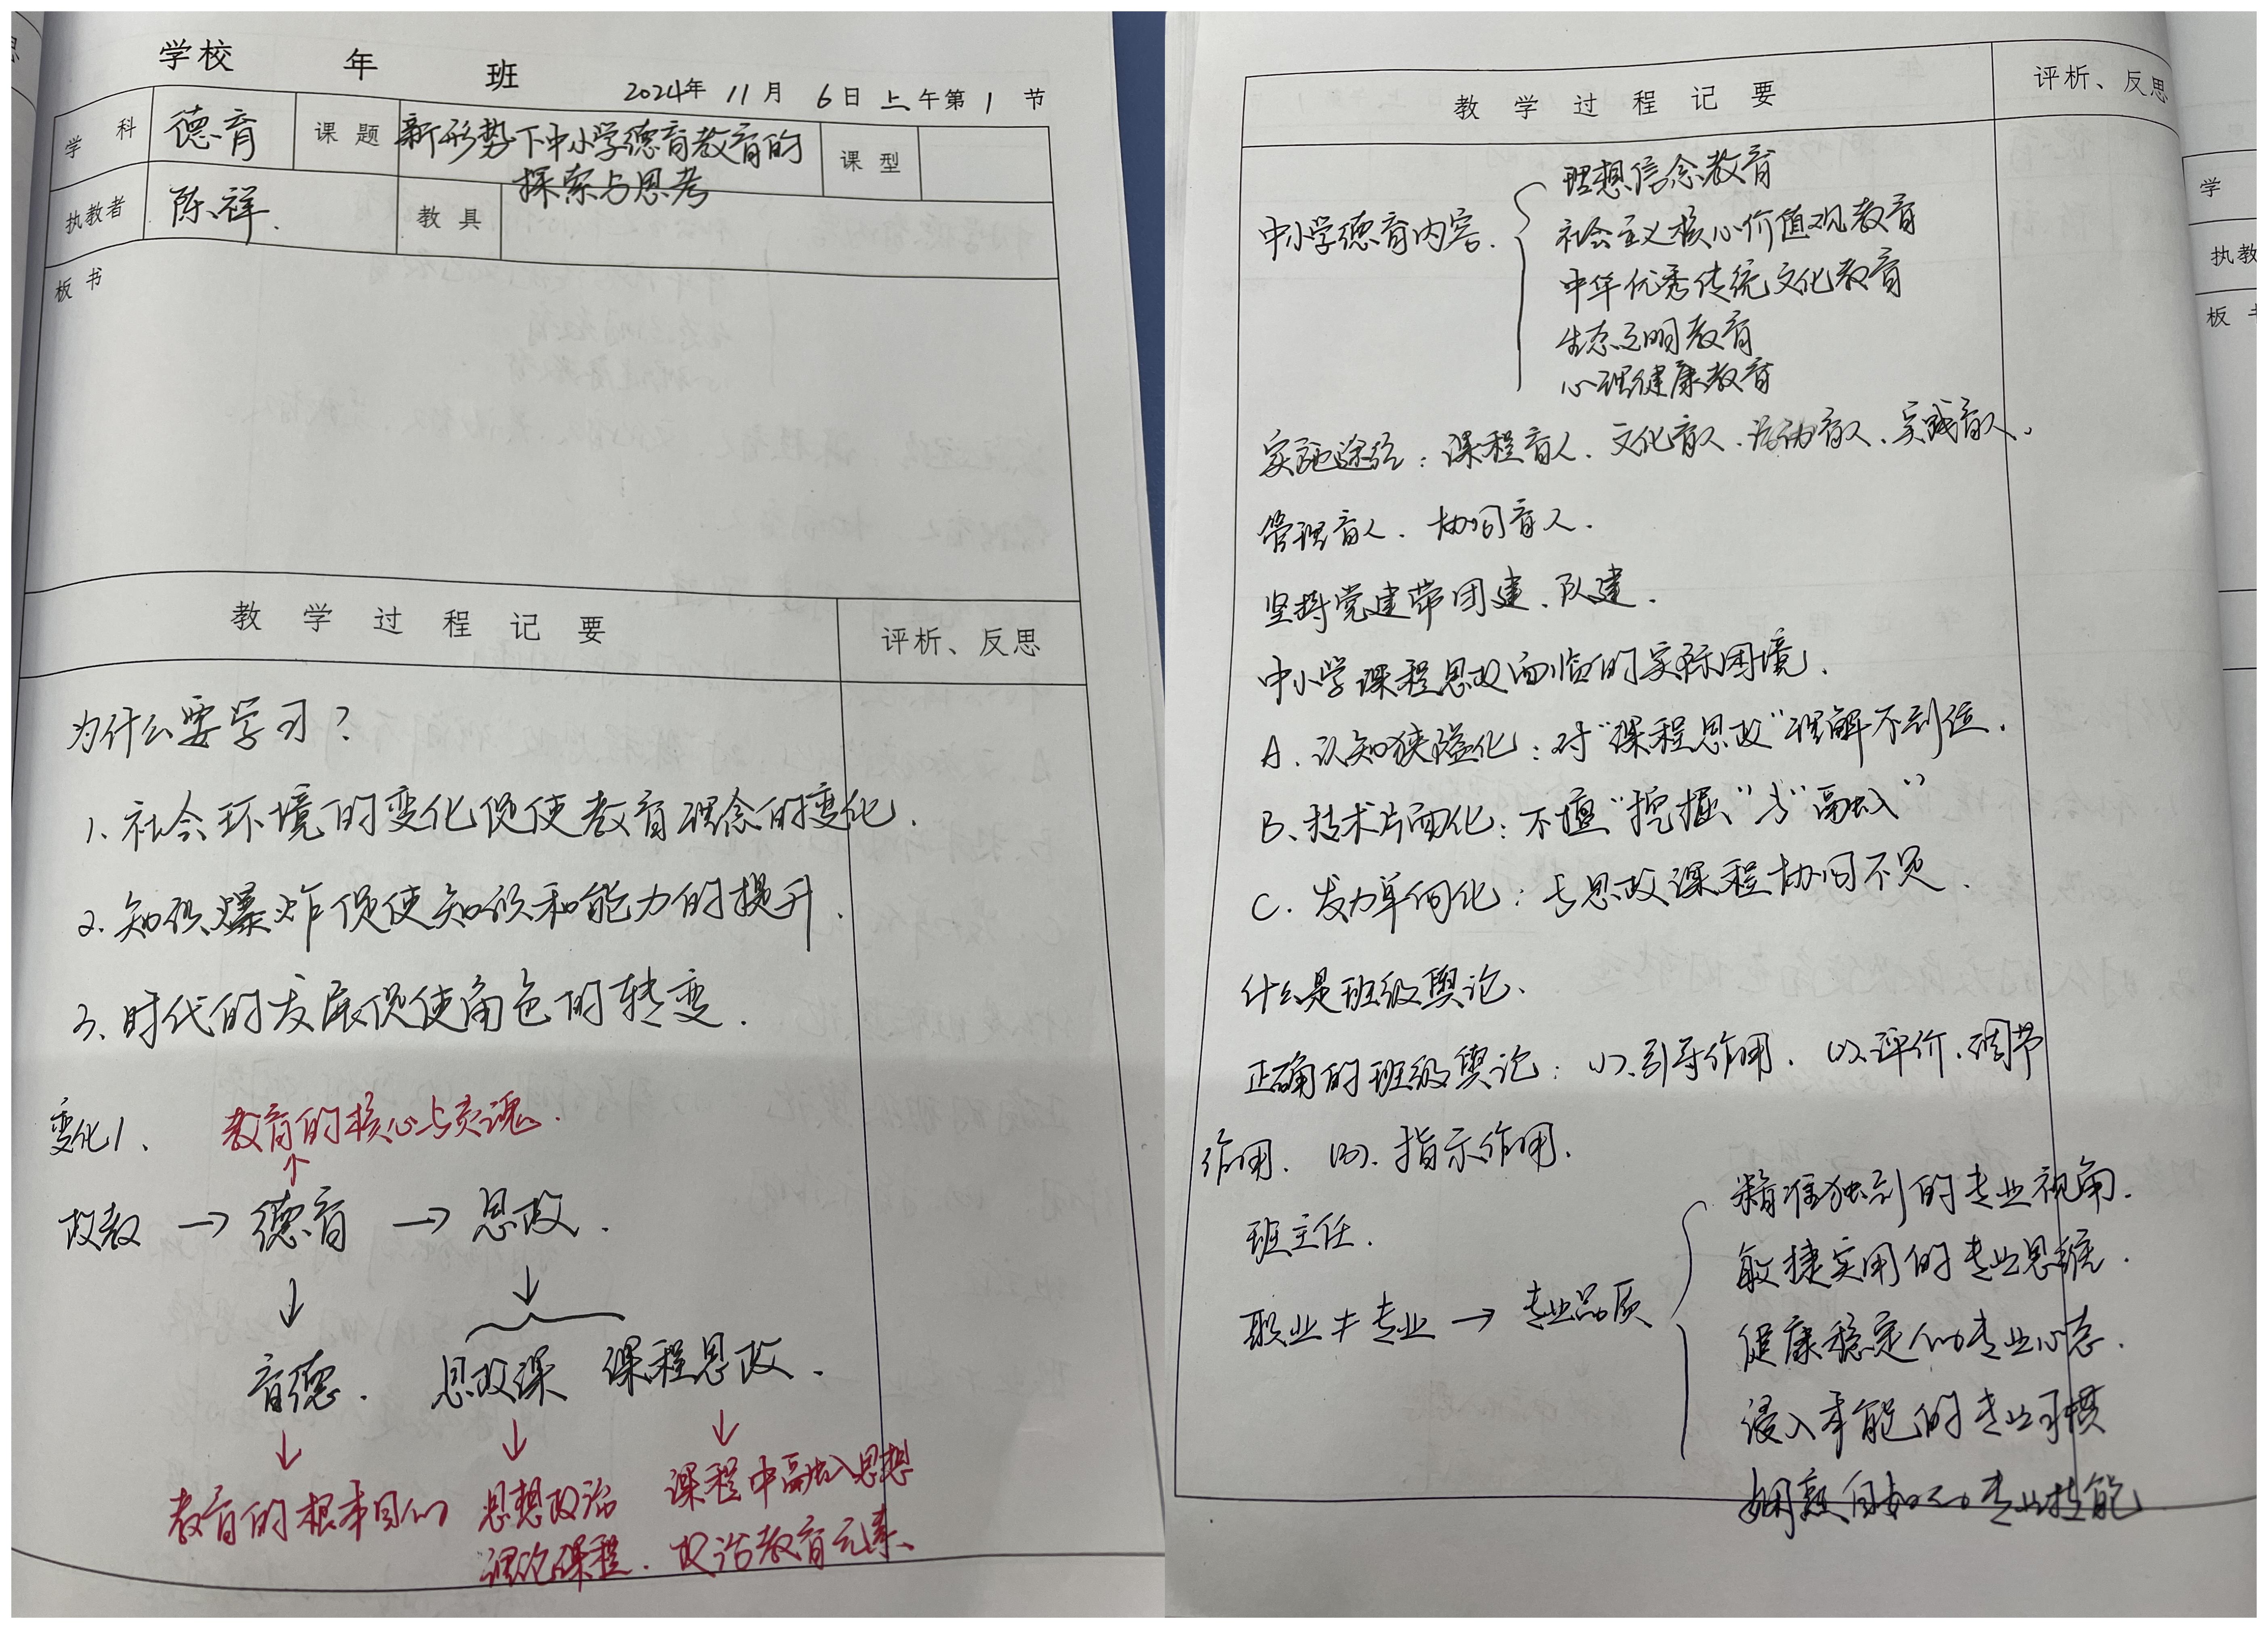 学校 年 班
2024年 11月 6日 上午第 1 节
学 科 德育 课 题 新形势下中小学德育教育的 课 型
探索与思考
执教者 陈祥. 教 具
板 书
教 学 过 程 记 要 评析、反思
为什么要学习?
1. 社会环境的变化促使教育理念的变化.
2. 知识爆炸促使知识和能力的提升.
3. 时代的发展促使角色的转变.
变化1、 教育的核心与灵魂.
↑
政教 → 德育 → 思政.
↓ ↓
育德. 思政课 课程思政.
↓ ↓ ↓
教育的根本目的 思想政治 课程中融入思想
理论课程. 政治教育元素、
教 学 过 程 记 要 评析、反思
理想信念教育
中小学德育内容. 社会主义核心价值观教育
中华优秀传统文化教育
生态文明教育
心理健康教育
实施途径:课程育人、文化育人、活动育人、实践育人、
管理育人、协同育人.
坚持党建带团建、队建.
中小学课程思政面临的实际困境.
A. 认知狭隘化:对“课程思政”理解不到位.
B、技术片面化:不擅“挖掘”与“融入”
C. 发力单向化:与思政课程协同不足.
什么是班级舆论、
正确的班级舆论:(1).引导作用. (2).评价、调节
作用. (3). 指示作用.
班主任.
精准独到的专业视角.
敏捷实用的专业思维.
职业≠专业 → 专业品质 健康稳定的专业心态.
浸入本能的专业习惯
娴熟自如的专业技能
学
执教
板